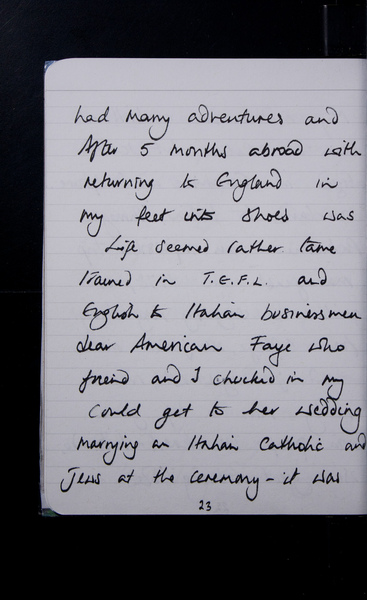 had many adventures and
After 5 months abroad with
returning to England in
my feet into shoes was
Life seemed rather tame
trained in T.E.F.L. and
English to Italian businessmen
dear American Faye who
friend and I chucked in my
could get to her wedding
marrying an Italian Catholic and
Jews at the ceremony - it was
23